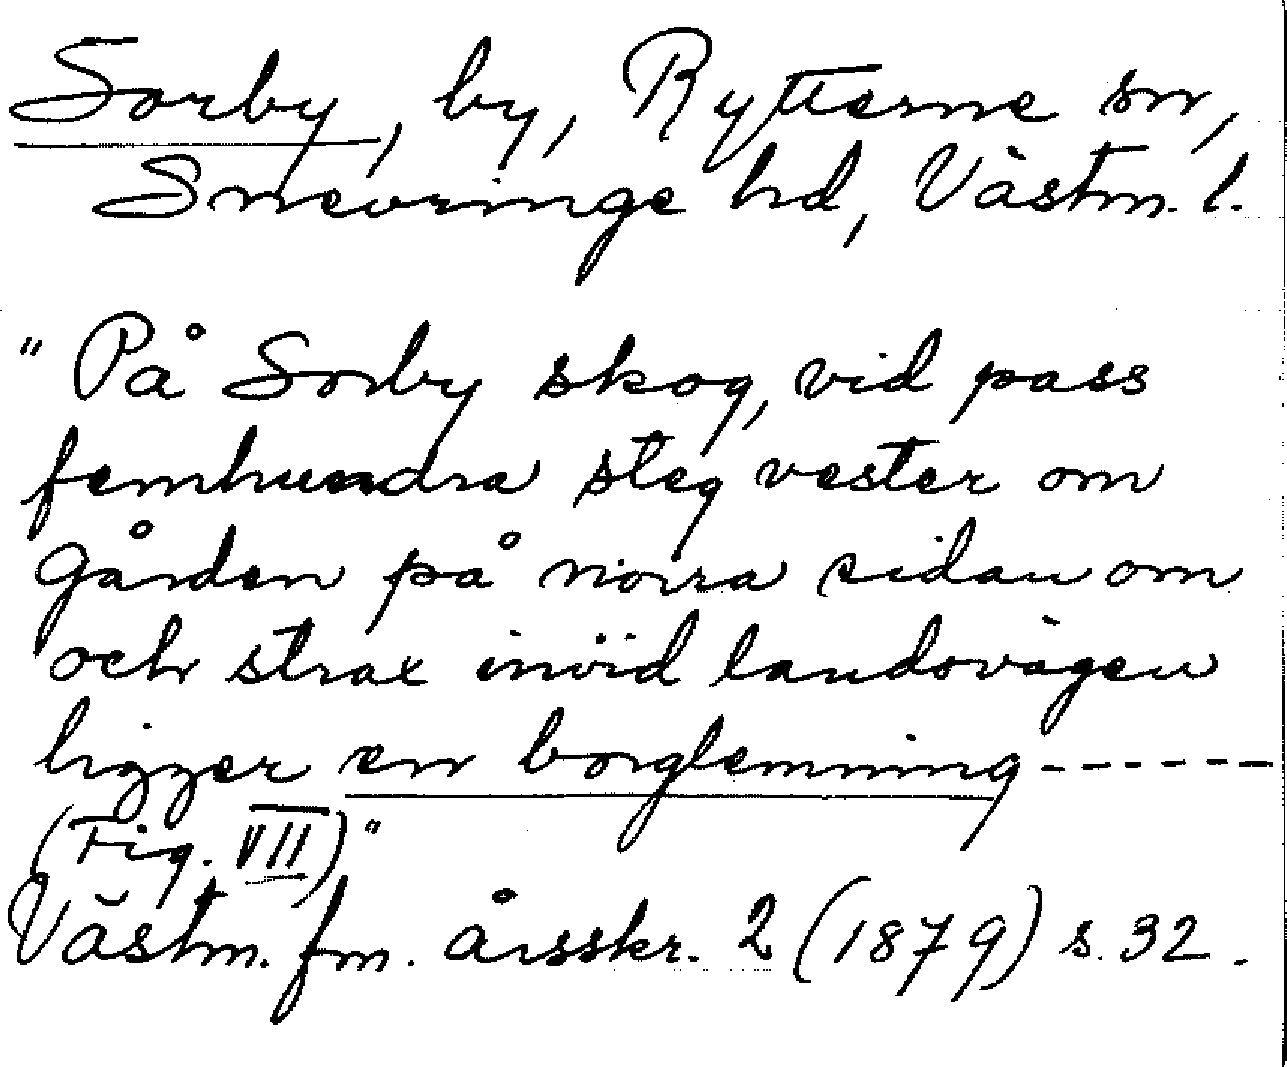 Sorby, by, Rytterne sn,
Snevringe hd, Västm. l.
"På Sorby skog, vid pass
femhundra steg vester om
gården på norra sidan om
och strax invid landsvägen
ligger en borglemning ------
(Fig. VII)"
Västm. fm. årsskr. 2 (1879) s. 32.